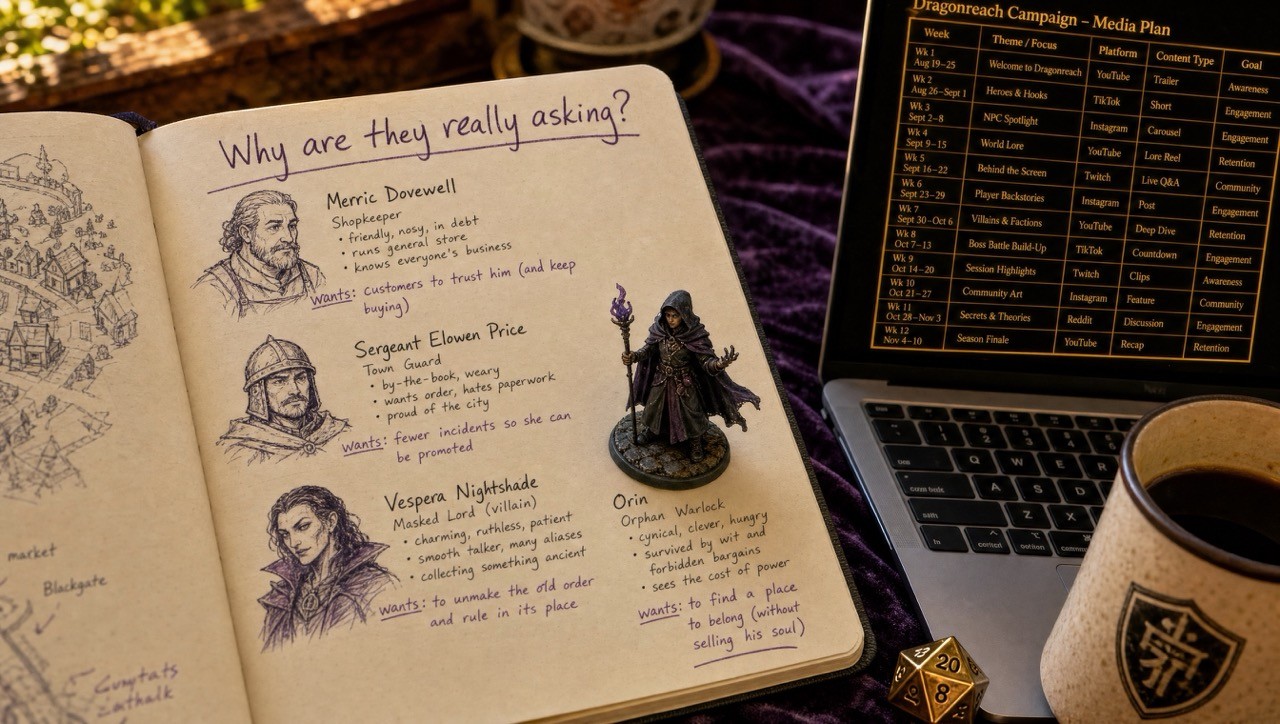 Why are they really asking?
Merric Dovewell
Shopkeeper
• friendly, nosy, in debt
• runs general store
• knows everyone's business
wants: customers to trust him (and keep
buying)
Sergeant Elowen Price
Town Guard
• by-the-book, weary
• wants order, hates paperwork
• proud of the city
wants: fewer incidents so she can
be promoted
Vespera Nightshade
Masked Lord (villain)
• charming, ruthless, patient
• smooth talker, many aliases
• collecting something ancient
wants: to unmake the old order
and rule in its place
Orin
Orphan Warlock
• cynical, clever, hungry
• survived by wit and
forbidden bargains
• sees the cost of power
wants: to find a place
to belong (without
selling his soul)
market
Blackgate
Dragonreach Campaign – Media Plan
Week Theme / Focus Platform Content Type Goal
Wk 1
Aug 19–25 Welcome to Dragonreach YouTube Trailer Awareness
Wk 2
Aug 26–Sept 1 Heroes & Hooks TikTok Short Engagement
Wk 3
Sept 2–8 NPC Spotlight Instagram Carousel Engagement
Wk 4
Sept 9–15 World Lore YouTube Lore Reel Retention
Wk 5
Sept 16–22 Behind the Screen Twitch Live Q&A Community
Wk 6
Sept 23–29 Player Backstories Instagram Post Engagement
Wk 7
Sept 30–Oct 6 Villains & Factions YouTube Deep Dive Retention
Wk 8
Oct 7–13 Boss Battle Build-Up TikTok Countdown Engagement
Wk 9
Oct 14–20 Session Highlights Twitch Clips Awareness
Wk 10
Oct 21–27 Community Art Instagram Feature Community
Wk 11
Oct 28–Nov 3 Secrets & Theories Reddit Discussion Engagement
Wk 12
Nov 4–10 Season Finale YouTube Recap Retention
Q W E R
A S D
Z X
20
8